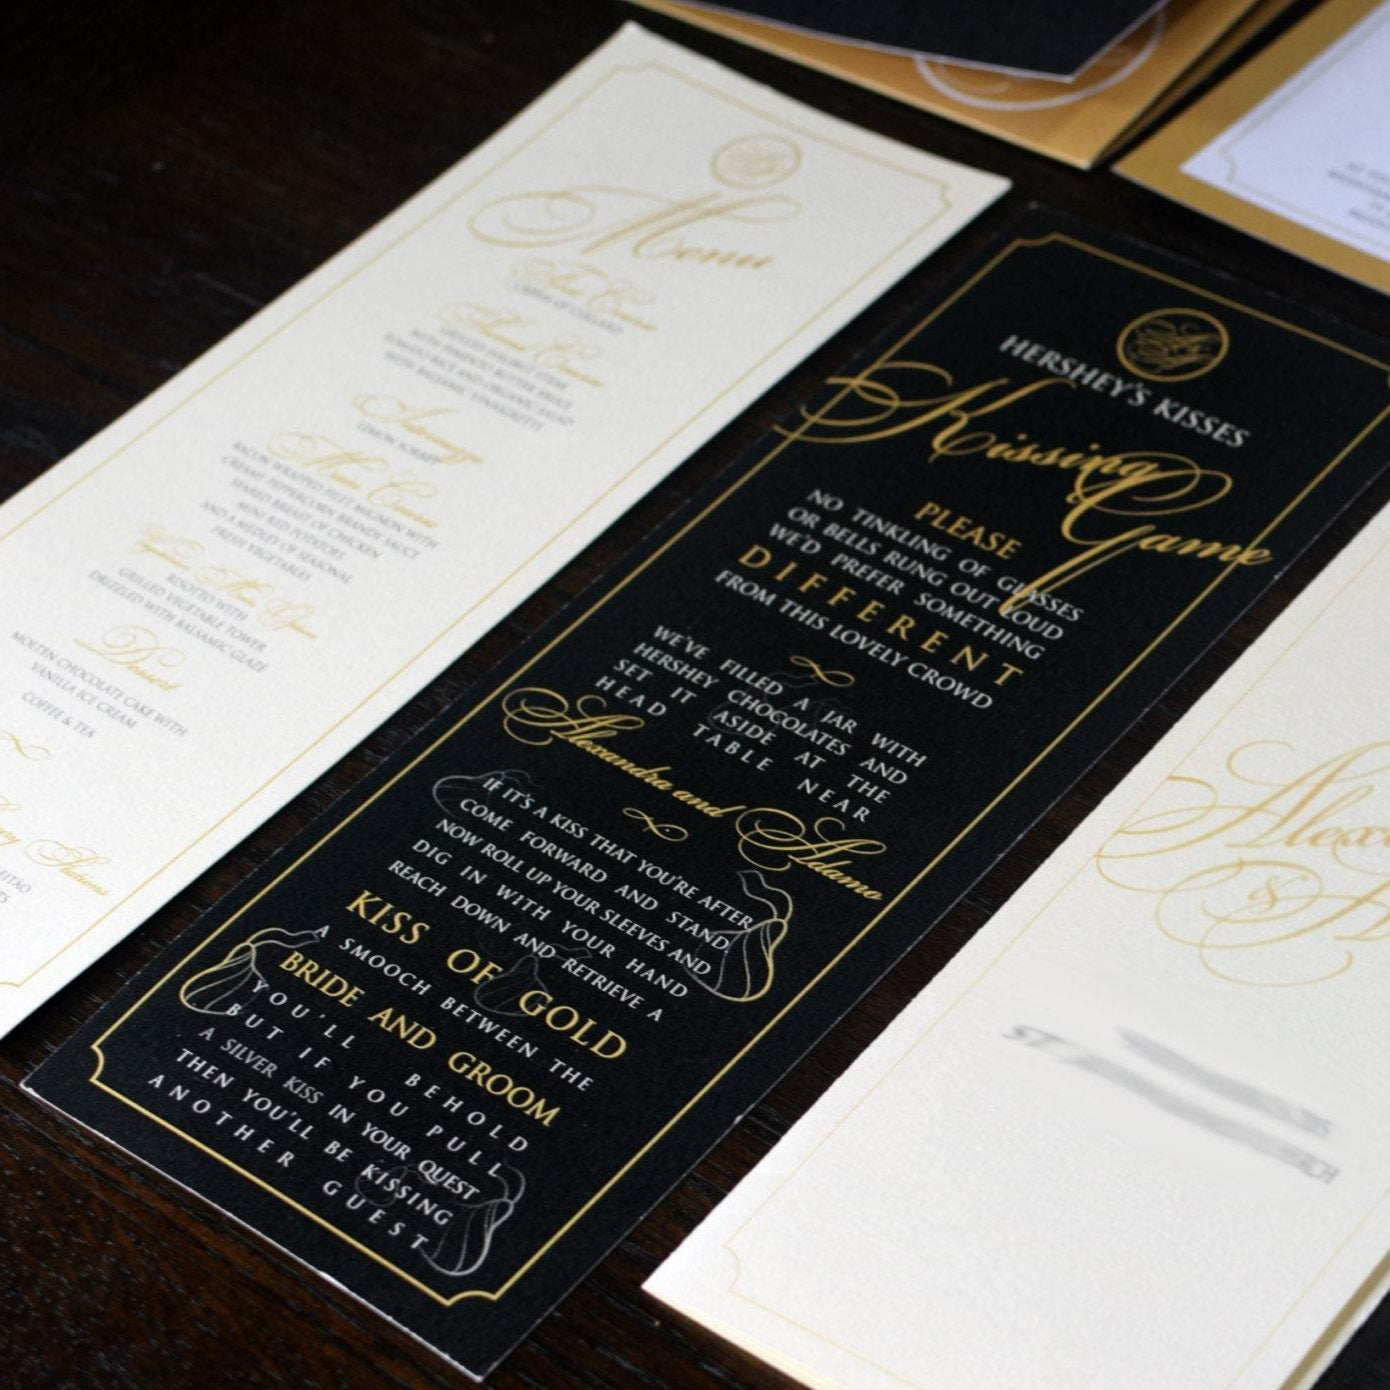 Menu
First Course
Second Course
Intermezzo
LEMON SORBET
Main Course
BACON WRAPPED FILET MIGNON WITH
CREAMY PEPPERCORN BRANDY SAUCE
SEARED BREAST OF CHICKEN
MINI RED POTATOES
AND A MEDLEY OF SEASONAL
FRESH VEGETABLES
RISOTTO WITH
GRILLED VEGETABLE TOWER
DRIZZLED WITH BALSAMIC GLAZE
Dessert
MOLTEN CHOCOLATE CAKE WITH
VANILLA ICE CREAM
COFFEE & TEA
HERSHEY'S KISSES
Kissing
Game
PLEASE
NO TINKLING OF GLASSES
OR BELLS RUNG OUT LOUD
WE'D PREFER SOMETHING
DIFFERENT
FROM THIS LOVELY CROWD
WE'VE FILLED A JAR WITH
HERSHEY CHOCOLATES AND
SET IT ASIDE AT THE
HEAD TABLE NEAR
Alexandra and Adamo
IF IT'S A KISS THAT YOU'RE AFTER
COME FORWARD AND STAND
NOW ROLL UP YOUR SLEEVES AND
DIG IN WITH YOUR HAND
REACH DOWN AND RETRIEVE A
KISS OF GOLD
A SMOOCH BETWEEN THE
BRIDE AND GROOM
YOU'LL BEHOLD
BUT IF YOU PULL
A SILVER KISS IN YOUR QUEST
THEN YOU'LL BE KISSING
ANOTHER GUEST
&